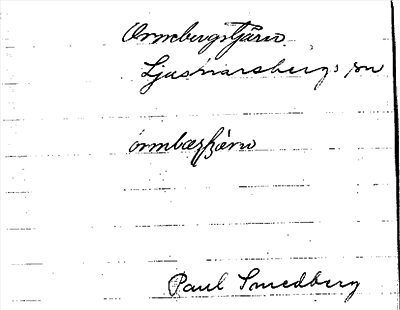 Ormbergstjärn
Ljusnarsbergs sn
ormbærʃæ̀rn
Paul Smedberg